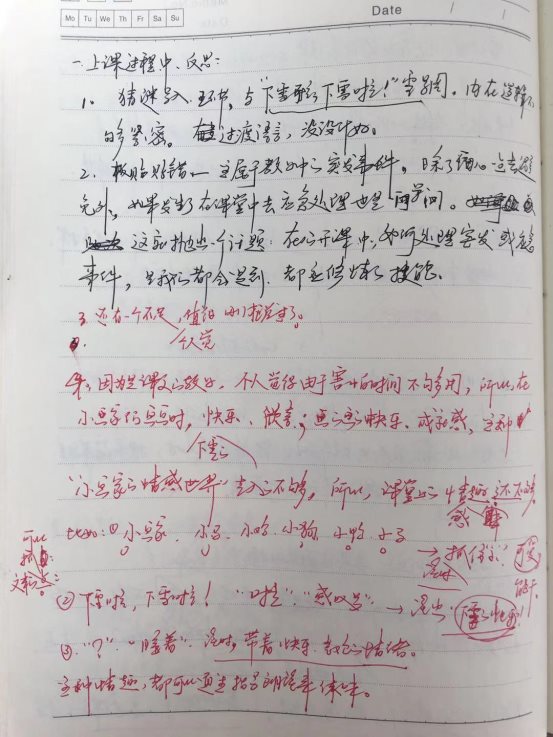 Mo Tu We Th Fr Sa Su
Date / /
一、上课过程中、反思:
1、猜谜导入环节,与“下雪啦,下雪啦!”雪景图。内在逻辑
的够紧密。过渡语言,没设计好。
2、板贴贴错——主属于教学中的突发事件,除了细心检查
免外,如果发生了在课堂中去应急处理也是一门学问。
这就抛出一个话题:在公开课中,如何处理突发或应急
事件,是我们都会遇到、都要修炼的技能。
3、还有一个不足,值得咱们探讨的。
个人觉
4、因为是课文的教学,个人觉得由于写的时间不够多用,所以在
小画家们画画时,快乐、欣喜;画的画快乐、成就感,这种
下雪的
“小画家的情感世界”走入的不够,所以,课堂的情趣还不够
感
比如:①小画家、小马、小鸡、小狗、小鸭、小马
所以
抓
文本的:
→抓住“
读出
②下雪啦,下雪啦!“啦”“感叹号”→读出下雪的快乐!
③“?”“睡着”读时,带着快乐、
这种情趣,都可以通过指导朗读来体味。